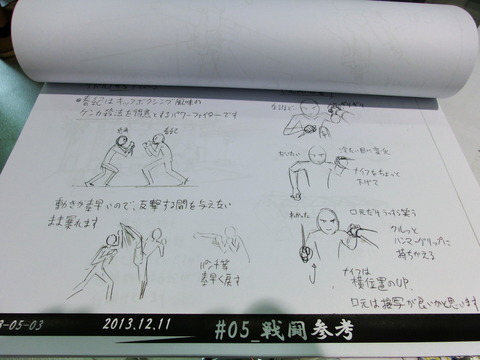 ●春記はキックボクシング風味の
ケンカ殺法を得意とするパワーファイターです
春記
動きが素早いので、反撃する間を与えない
まま暴れます
パンチ等
素早く戻す
なるほど
だいたい
冷たい目に変化
ナイフをちょっと
下げて
わかった
口元だけうっすら笑う
クルッと
ハンマーグリップに
持ちかえる
ナイフは
横位置のUP.
口元は接写が良いかと思います
3-05-03
2013.12.11
#05_戦闘参考